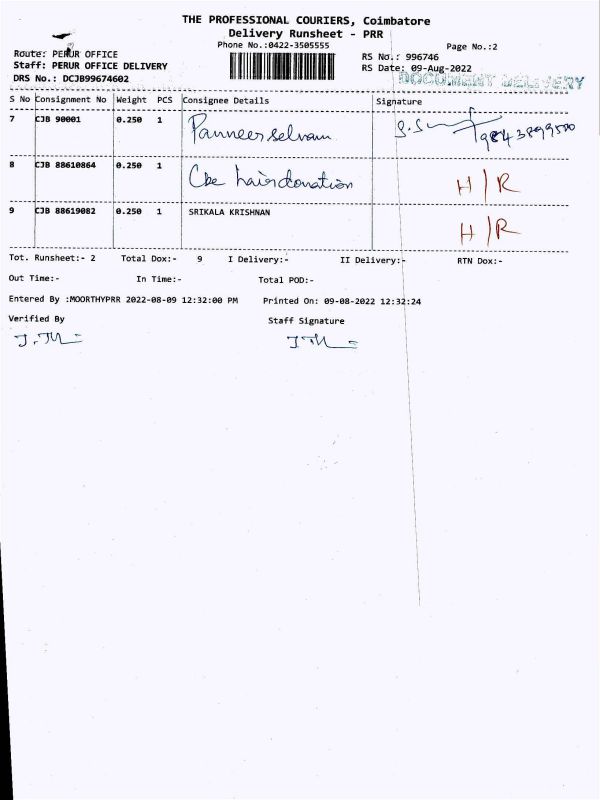 THE PROFESSIONAL COURIERS, Coimbatore
Delivery Runsheet - PRR
Phone No.:0422-3505555
Page No.:2
Route: PERUR OFFICE
RS No.: 996746
Staff: PERUR OFFICE DELIVERY
RS Date: 09-Aug-2022
DRS No.: DCJB99674602
DOCUMENT DELIVERY
S No Consignment No Weight PCS Consignee Details Signature
7 CJB 90001 0.250 1 Panneerselvam
8 CJB 88610864 0.250 1 Cbe hairdonation H/R
9 CJB 88619082 0.250 1 SRIKALA KRISHNAN H/R
Tot. Runsheet:- 2 Total Dox:- 9 I Delivery:- II Delivery:- RTN Dox:-
Out Time:- In Time:- Total POD:-
Entered By :MOORTHYPRR 2022-08-09 12:32:00 PM Printed On: 09-08-2022 12:32:24
Verified By Staff Signature